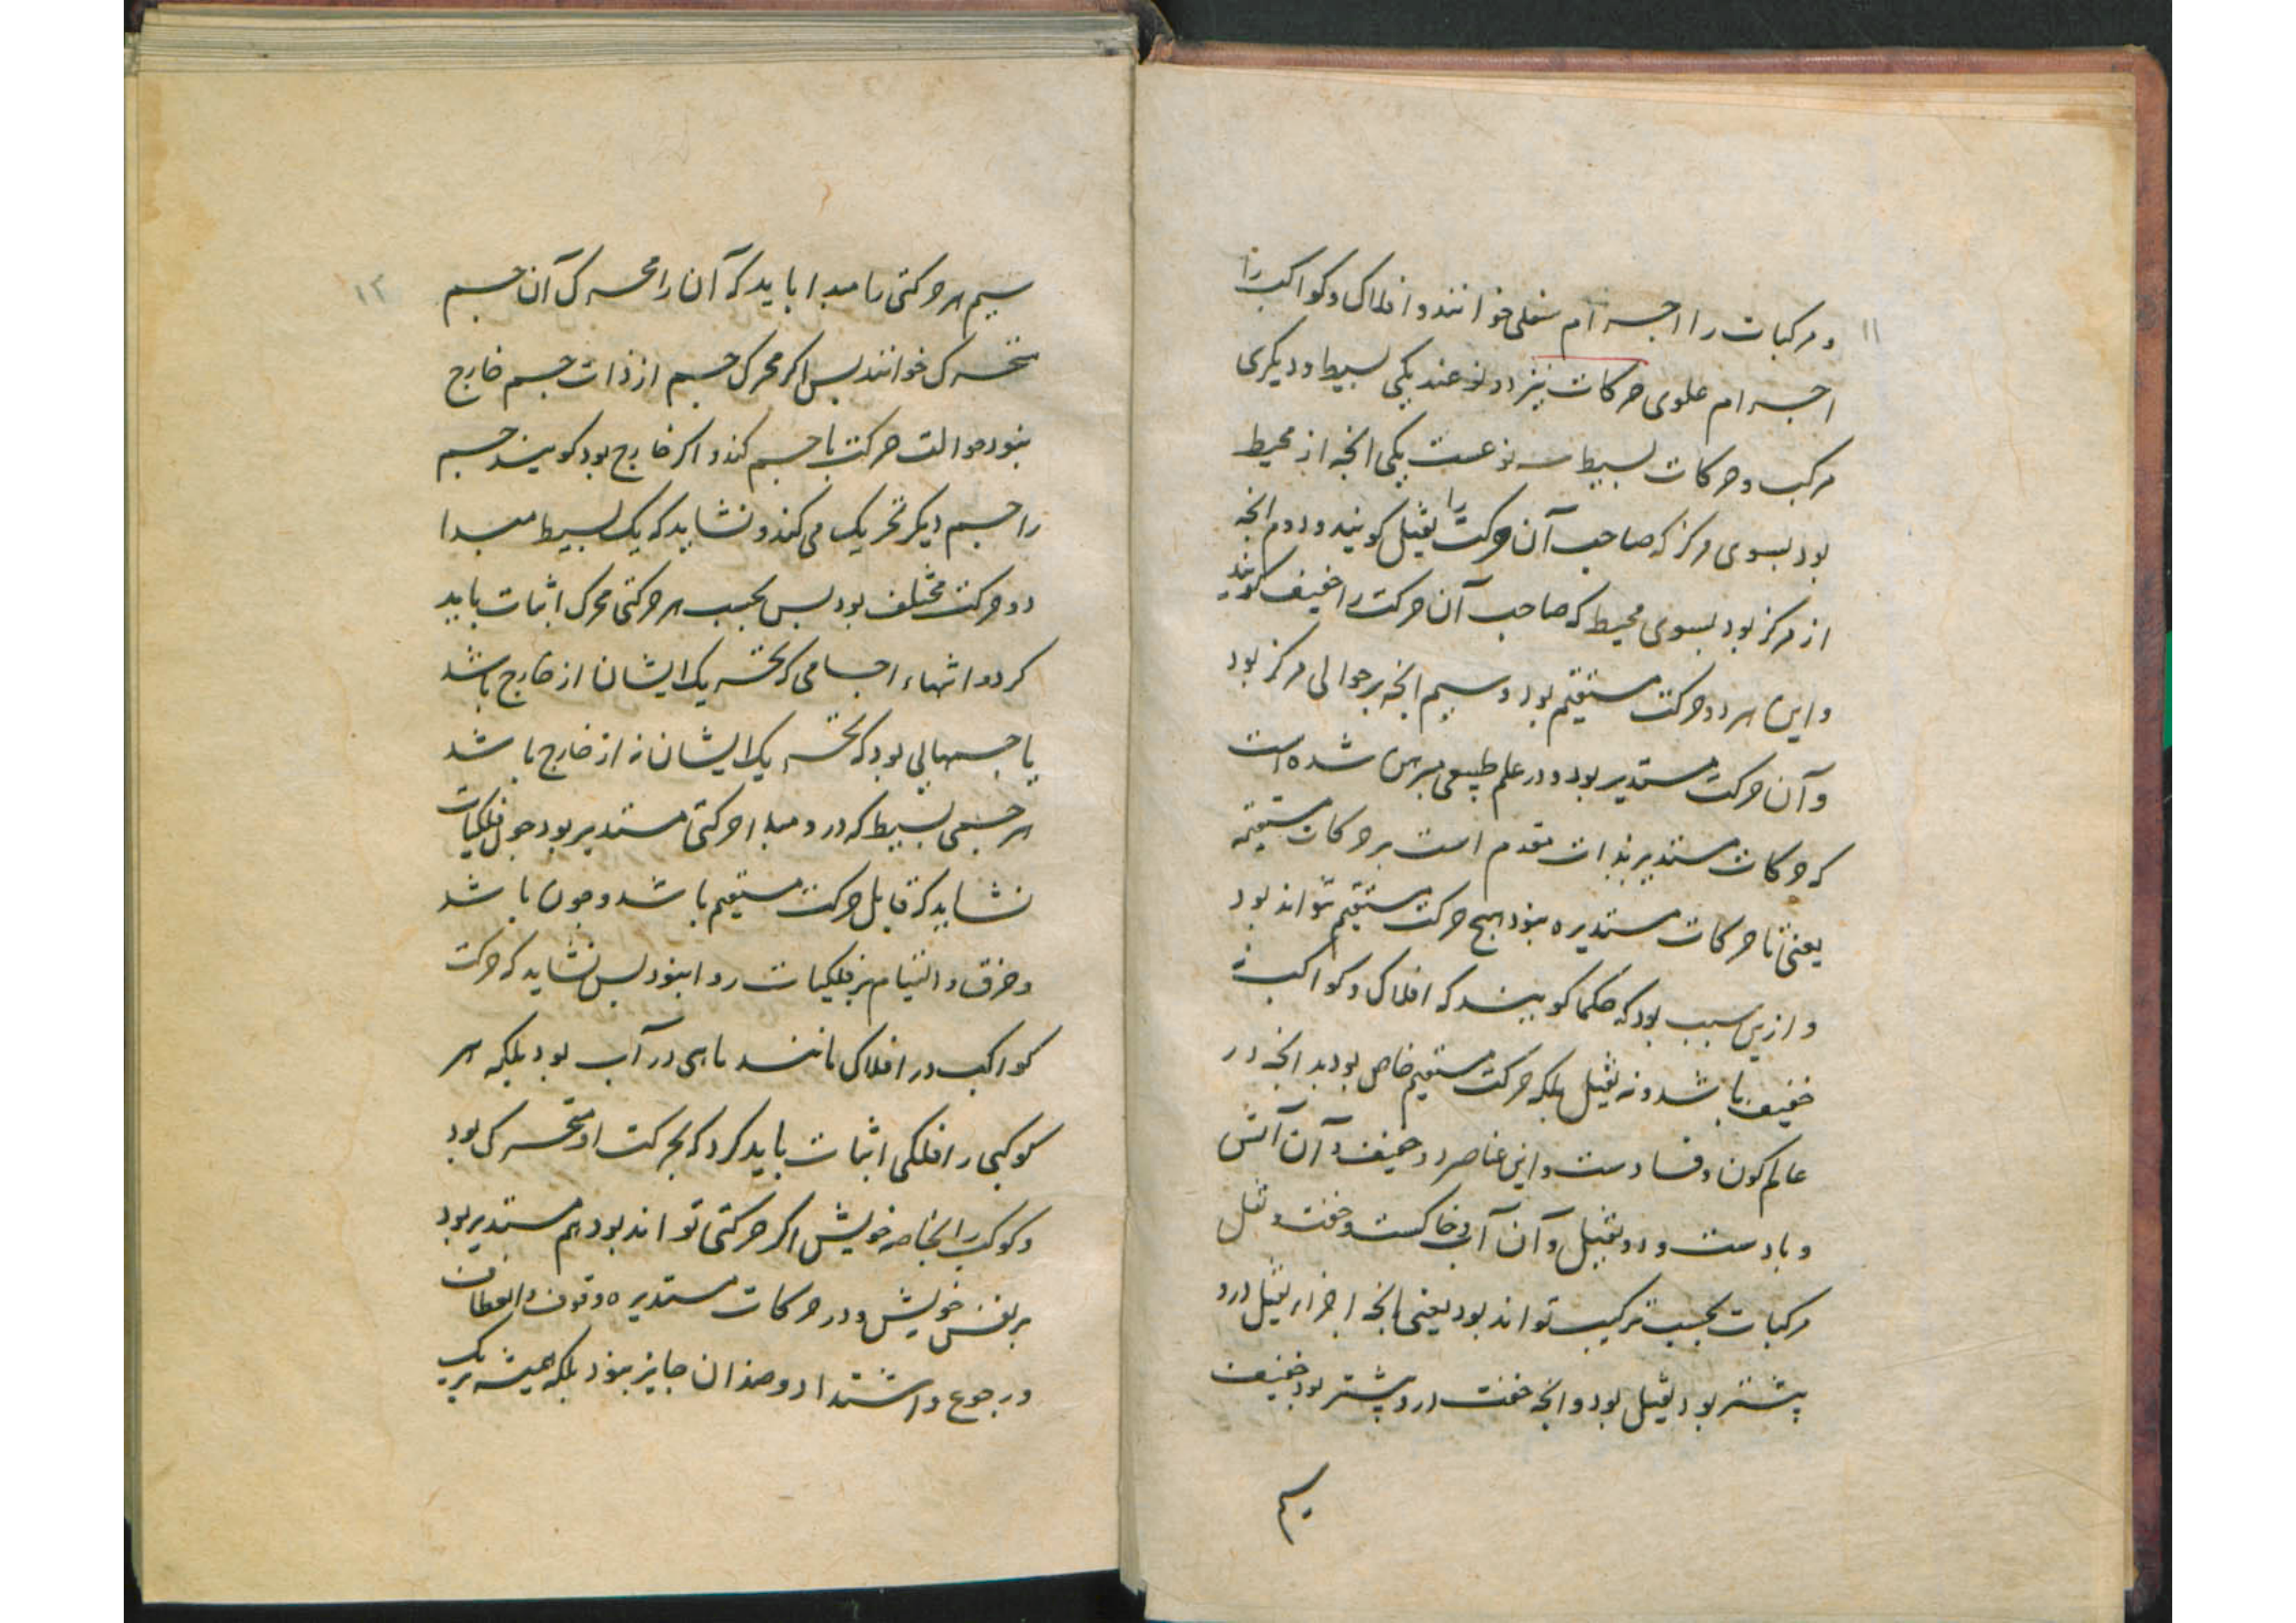 ۱۱
و مرکبات را اجسرام سفلی خوانند و افلاک و کواکب را
اجسرام علوی حرکات نیز دو نوعند یکی بسیط و دیگری
مرکب و حرکات بسیط سه نوعست یکی انچه از محیط
بود بسوی مرکز که صاحب آن حرکت را ثقیل گویند و دوم انچه
از مرکز بود بسوی محیط که صاحب آن حرکت را خفیف گویند
و این هر دو حرکت مستقیم بود و سیم انچه بر حوالی مرکز بود
و آن حرکت مستدیر بود و در علم طبیعی مبرهن شده است
که حرکات مستدیر بذات مقدم است بر حرکات مستقیمه
یعنی تا حرکات مستدیره نبود هیچ حرکت مستقیم نتواند بود
و ازین سبب بود که حکما گویند که افلاک و کواکب نه
خفیف باشد و نه ثقیل بلکه حرکت مستقیم خاص بود بدانچه در
عالم کون و فسادست و این عناصر دو خفیف و آن آتش
و بادست و دو ثقیل و آن آب و خاکست و خفت و ثقل
مرکبات بحسب ترکیب تواند بود یعنی بانچه اجزاء ثقیل درو
بیشتر بود ثقیل بود و انچه خفت درو بیشتر بود خفیف
سیم
۱۲
سیم هر حرکتی را مبدا باید که آن را محرک آن جسم
متحرک خوانند پس اگر محرک جسم از ذات جسم خارج
نبود حوالت حرکت با جسم کند و اگر خارج بود گویند جسم
را جسم دیگر تحریک می کند و نشاید که یک بسیط مبدا
دو حرکت مختلف بود پس بحسب هر حرکتی محرک اثبات باید
کرد و انتهاء اجسامی که تحریک ایشان از خارج باشد
با جسمهایی بود که تحریک ایشان نه از خارج باشد
هر جسمی بسیط که درو مبدا حرکتی مستدیر بود چون فلکیات
نشاید که قابل حرکت مستقیم باشد و چون باشد
و خرق و التیام بر فلکیات روا نبود پس نشاید که حرکت
کواکب در افلاک مانند ماهی در آب بود بلکه هر
کوکبی را فلکی اثبات باید کرد که بحرکت او متحرک بود
و کوکب را بخاصه خویش اگر حرکتی تواند بود هم مستدیر بود
بر نفس خویش و در حرکات مستدیره وقوف و انعطاف
و رجوع و اشتداد و ضد ان جایز نبود بلکه همیشه بر یک